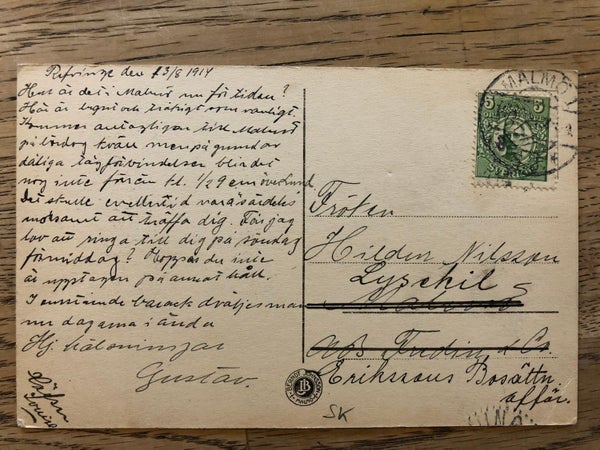 den 13/8 1914
Hur är det i Malmö nu för tiden?
Här är lugnt och tråkigt som vanligt.
Kommer antagligen till Malmö
på lördag kväll men på grund av
dåliga tågförbindelser blir det
nog inte förrän kl. 1/29 em
Det skulle emellertid vara särdeles
molsamt att träffa dig. Får jag
lov att ringa till dig på söndag
förmiddag? Hoppas du inte
är upptagen på annat håll.
I barack dväljes man
nu dagarna i ända
Hj. hälsningar
Gustav.
MALMÖ
5 5
SVERIGE
Fröken
Hilden Nilsson
Lysekil
& Co.
Erikssons Bosättn.
affär.
MALMÖ
JB
SK